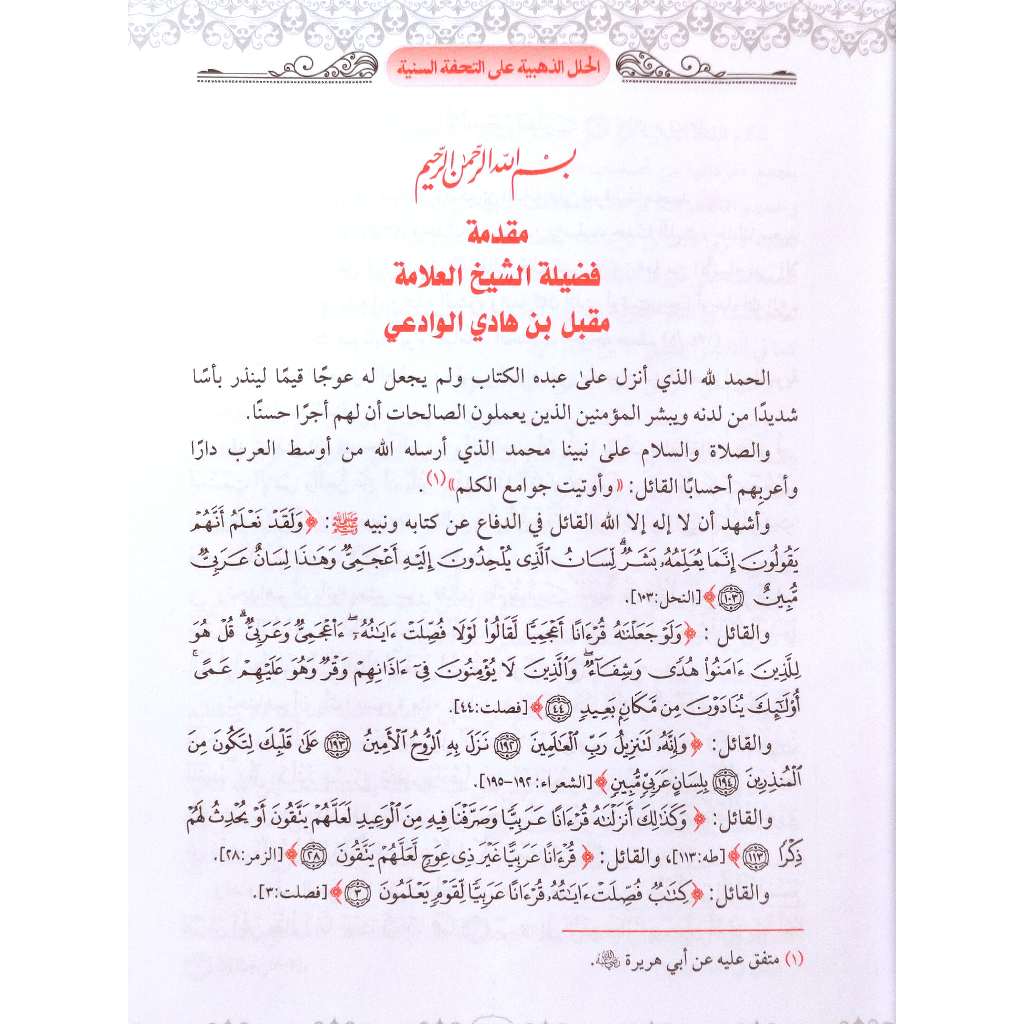 الحلل الذهبية على التحفة السنية
بسم الله الرحمن الرحيم
مقدمة
فضيلة الشيخ العلامة
مقبل بن هادي الوادعي
الحمد لله الذي أنزل علىٰ عبده الكتاب ولم يجعل له عوجًا قيمًا لينذر بأسًا
شديدًا من لدنه ويبشر المؤمنين الذين يعملون الصالحات أن لهم أجرًا حسنًا.
والصلاة والسلام علىٰ نبينا محمد الذي أرسله الله من أوسط العرب دارًا
وأعربهم أحسابًا القائل: «وأوتيت جوامع الكلم»(١).
وأشهد أن لا إله إلا الله القائل في الدفاع عن كتابه ونبيه ﷺ: ﴿وَلَقَدْ نَعْلَمُ أَنَّهُمْ
يَقُولُونَ إِنَّمَا يُعَلِّمُهُۥ بَشَرٌ ۗ لِّسَانُ ٱلَّذِى يُلْحِدُونَ إِلَيْهِ أَعْجَمِىٌّ وَهَٰذَا لِسَانٌ عَرَبِىٌّ
مُّبِينٌ ١٠٣﴾ [النحل:١٠٣].
والقائل : ﴿وَلَوْ جَعَلْنَٰهُ قُرْءَانًا أَعْجَمِيًّا لَّقَالُوا۟ لَوْلَا فُصِّلَتْ ءَايَٰتُهُۥٓ ۖ ءَا۬عْجَمِىٌّ وَعَرَبِىٌّ ۗ قُلْ هُوَ
لِلَّذِينَ ءَامَنُوا۟ هُدًى وَشِفَآءٌ ۖ وَٱلَّذِينَ لَا يُؤْمِنُونَ فِىٓ ءَاذَانِهِمْ وَقْرٌ وَهُوَ عَلَيْهِمْ عَمًى ۚ
أُو۟لَٰٓئِكَ يُنَادَوْنَ مِن مَّكَانٍۭ بَعِيدٍ ٤٤﴾ [فصلت:٤٤].
والقائل: ﴿وَإِنَّهُۥ لَتَنزِيلُ رَبِّ ٱلْعَٰلَمِينَ ١٩٢ نَزَلَ بِهِ ٱلرُّوحُ ٱلْأَمِينُ ١٩٣ عَلَىٰ قَلْبِكَ لِتَكُونَ مِنَ
ٱلْمُنذِرِينَ ١٩٤ بِلِسَانٍ عَرَبِىٍّ مُّبِينٍ﴾ [الشعراء:١٩٢-١٩٥].
والقائل: ﴿وَكَذَٰلِكَ أَنزَلْنَٰهُ قُرْءَانًا عَرَبِيًّا وَصَرَّفْنَا فِيهِ مِنَ ٱلْوَعِيدِ لَعَلَّهُمْ يَتَّقُونَ أَوْ يُحْدِثُ لَهُمْ
ذِكْرًا ١١٣﴾ [طه:١١٣]، والقائل: ﴿قُرْءَانًا عَرَبِيًّا غَيْرَ ذِى عِوَجٍ لَّعَلَّهُمْ يَتَّقُونَ ٢٨﴾ [الزمر:٢٨].
والقائل: ﴿كِتَٰبٌ فُصِّلَتْ ءَايَٰتُهُۥ قُرْءَانًا عَرَبِيًّا لِّقَوْمٍ يَعْلَمُونَ ٣﴾ [فصلت:٣].
(١) متفق عليه عن أبي هريرة رضي الله عنه.